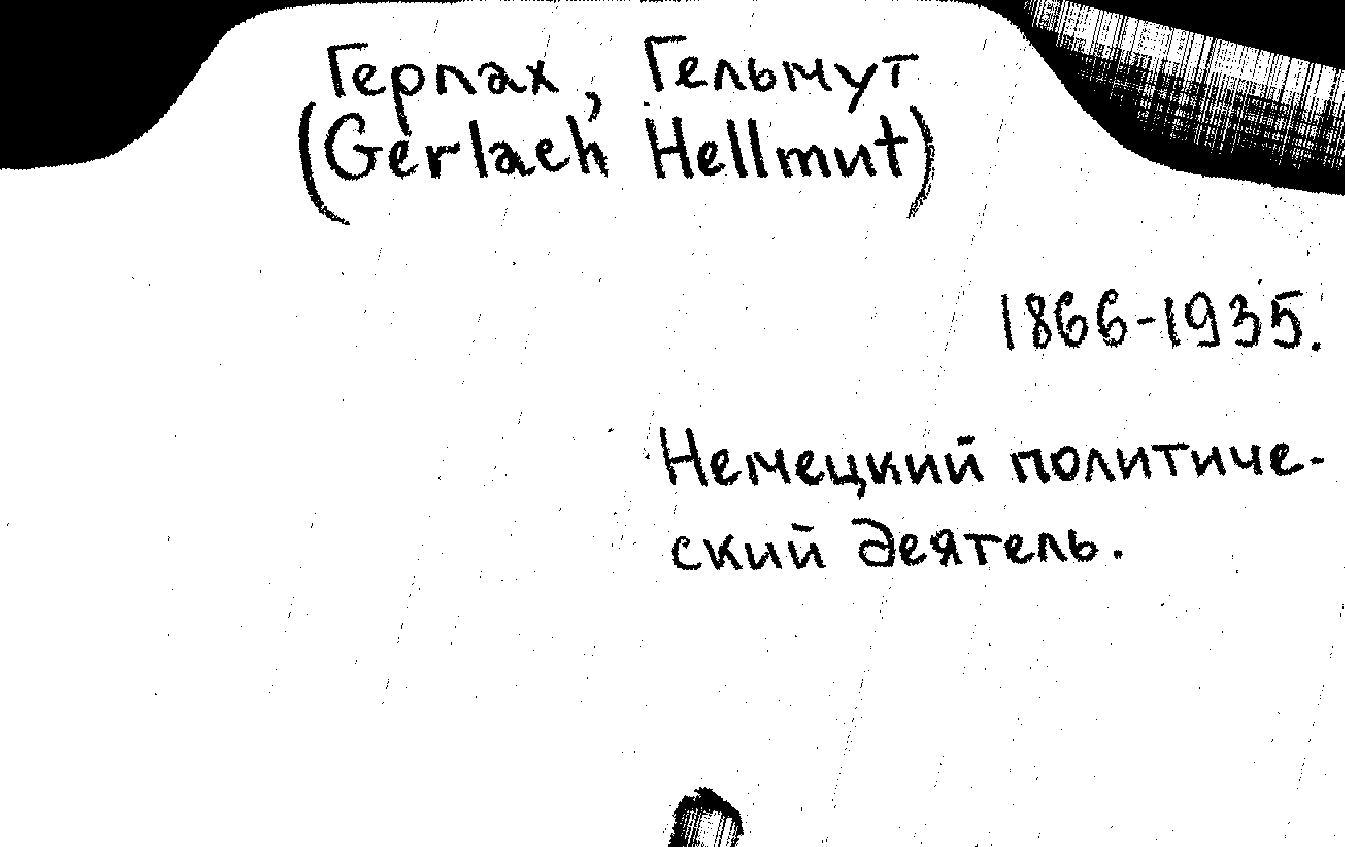 Герлах, Гельмут
(Gerlach Hellmut)
1866-1935.
Немецкий политиче-
ский деятель.